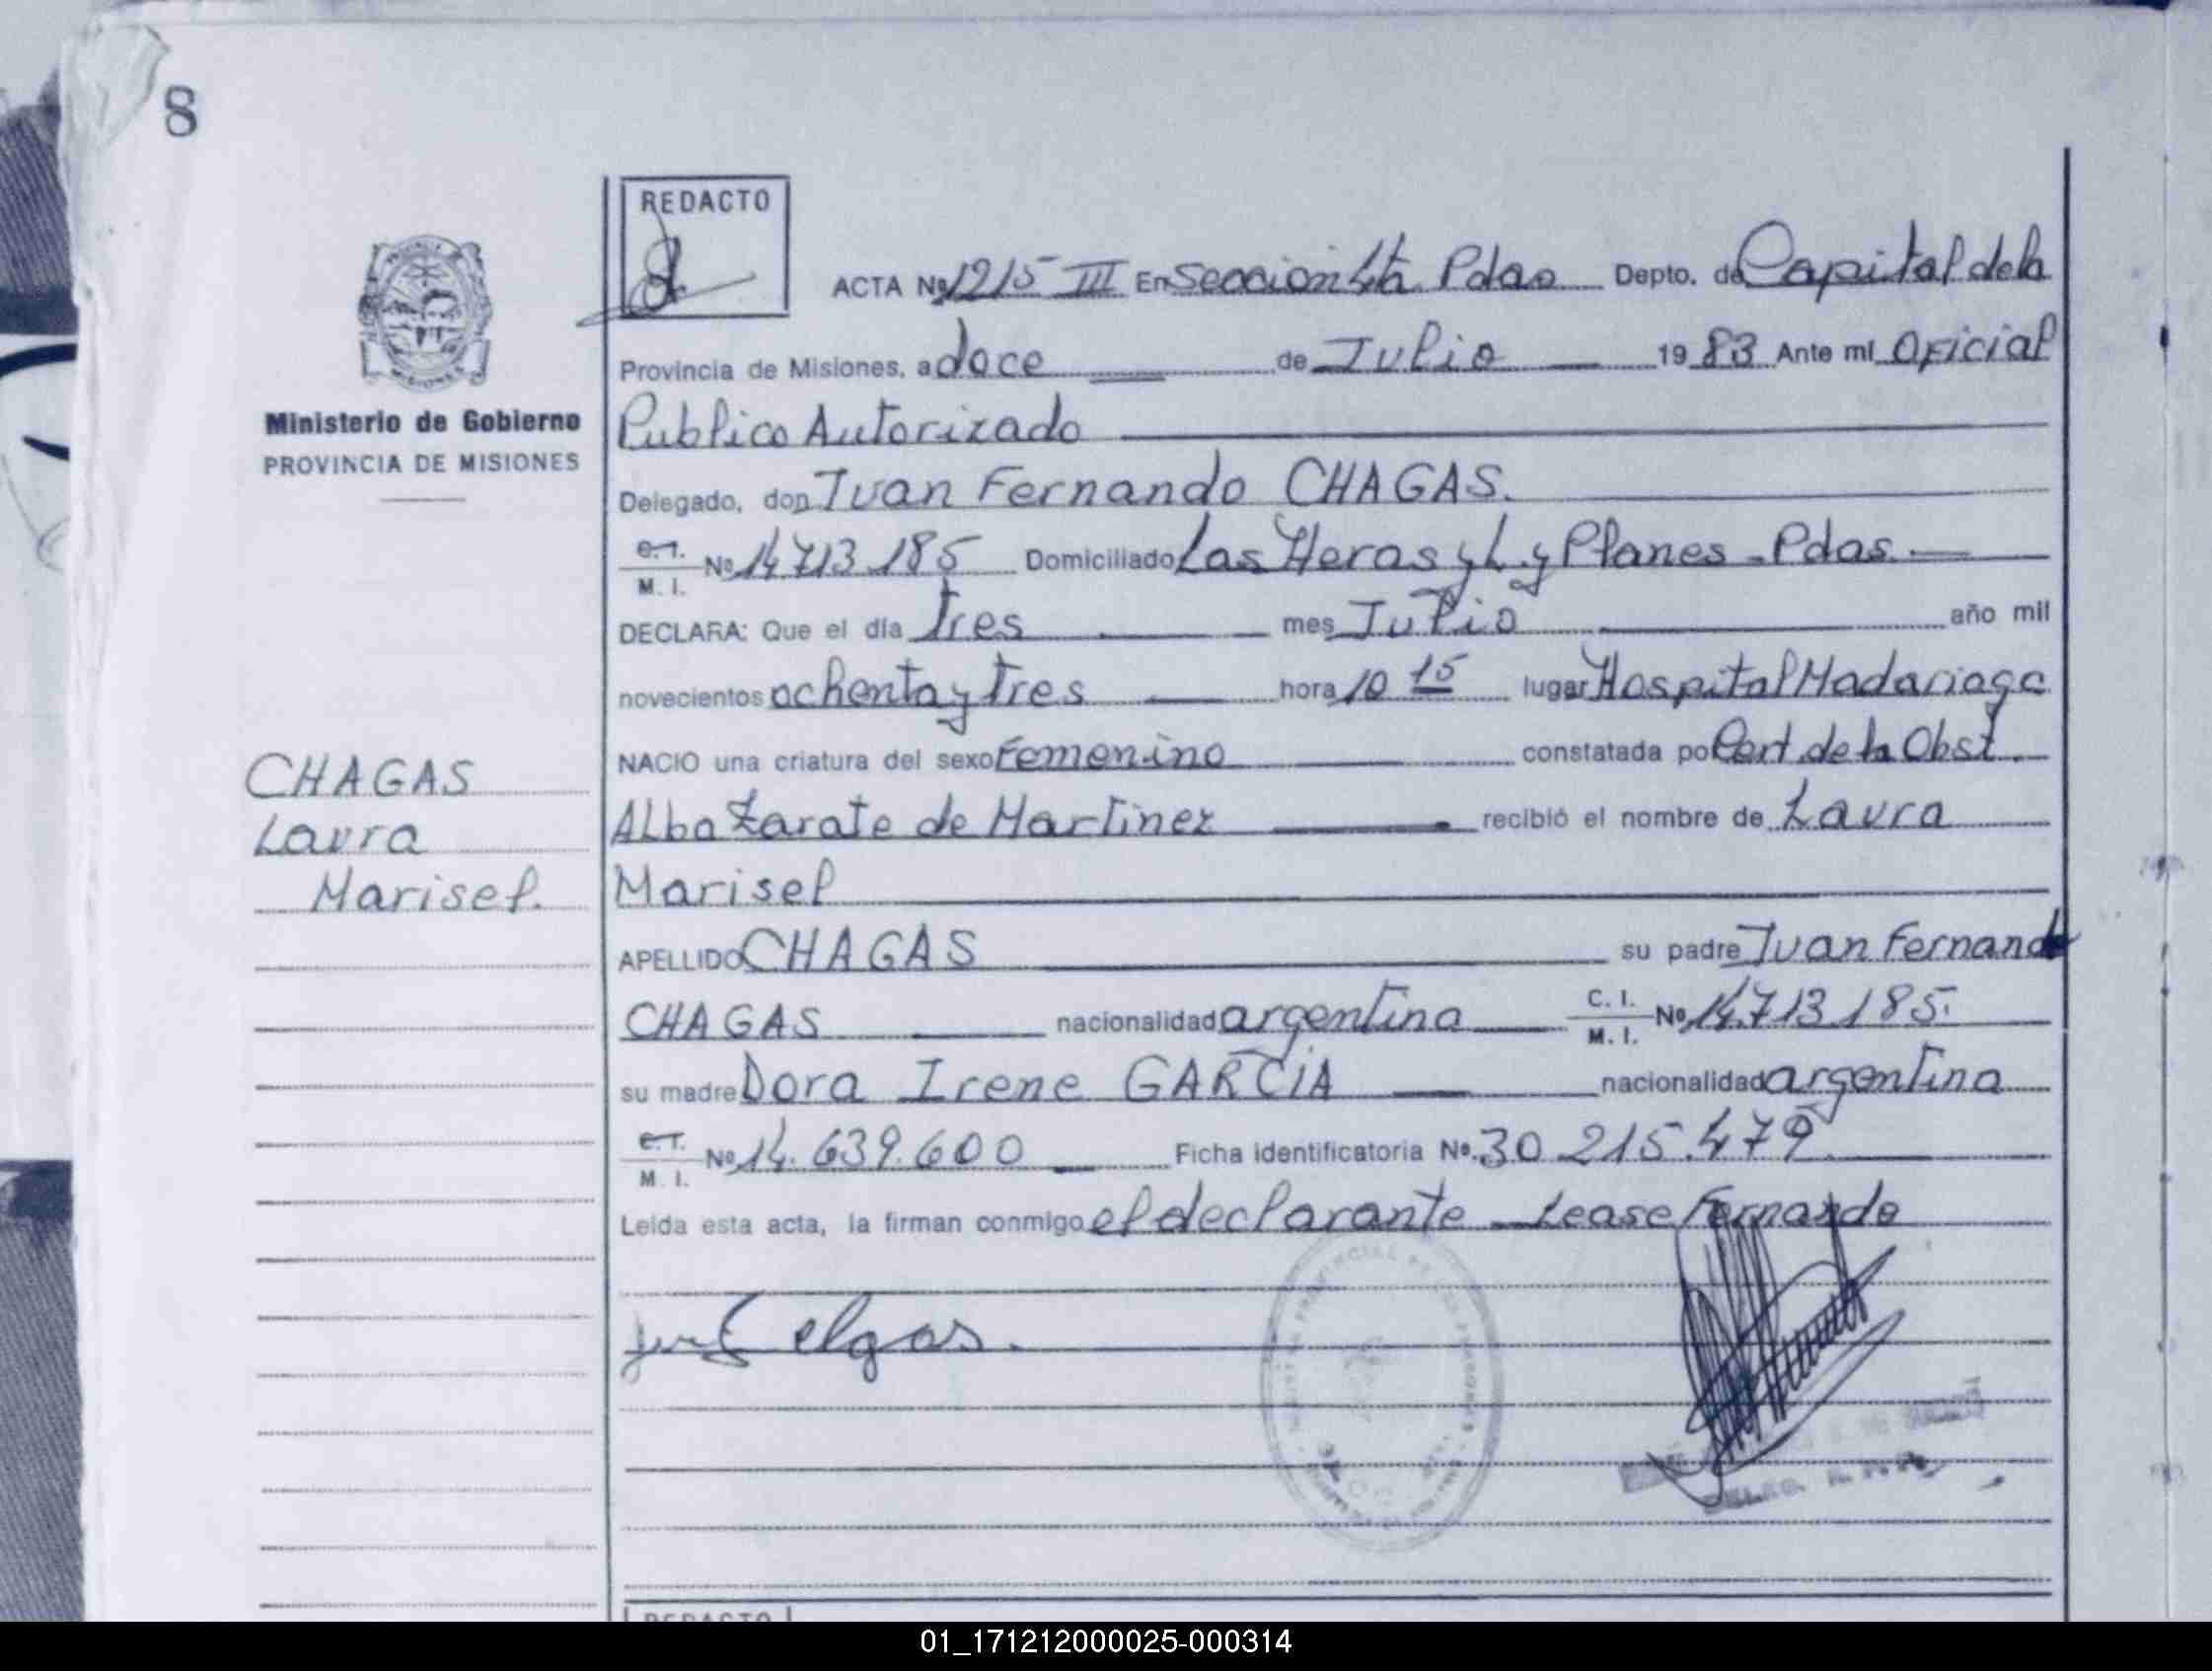 8
REDACTO
ACTA Nº 1215 III En Seccion 4ta. Pdas Depto. de Capital de la
Provincia de Misiones, a doce de Julio 1983 Ante mi Oficial
Ministerio de Gobierno
PROVINCIA DE MISIONES
Publico Autorizado
Delegado, don Juan Fernando CHAGAS.
C.I. M. I. Nº 14.713.185 Domiciliado Las Heras y L. y Planes - Pdas.
DECLARA: Que el día tres mes Julio año mil
novecientos ochenta y tres hora 10 15 lugar Hospital Madariaga
NACIO una criatura del sexo Femenino constatada por Cert. de la Obst.
CHAGAS
Laura
Marisel.
Alba Zarate de Martinez recibió el nombre de Laura
Marisel
APELLIDO CHAGAS su padre Juan Fernando
CHAGAS nacionalidad argentina C. I. M. I. Nº 14.713.185.
su madre Dora Irene GARCIA nacionalidad argentina
C.I. M. I. Nº 14.639.600 Ficha identificatoria Nº 30.215.479
Leída esta acta, la firman conmigo el declarante Lease Fernando
REDACTO
01_171212000025-000314